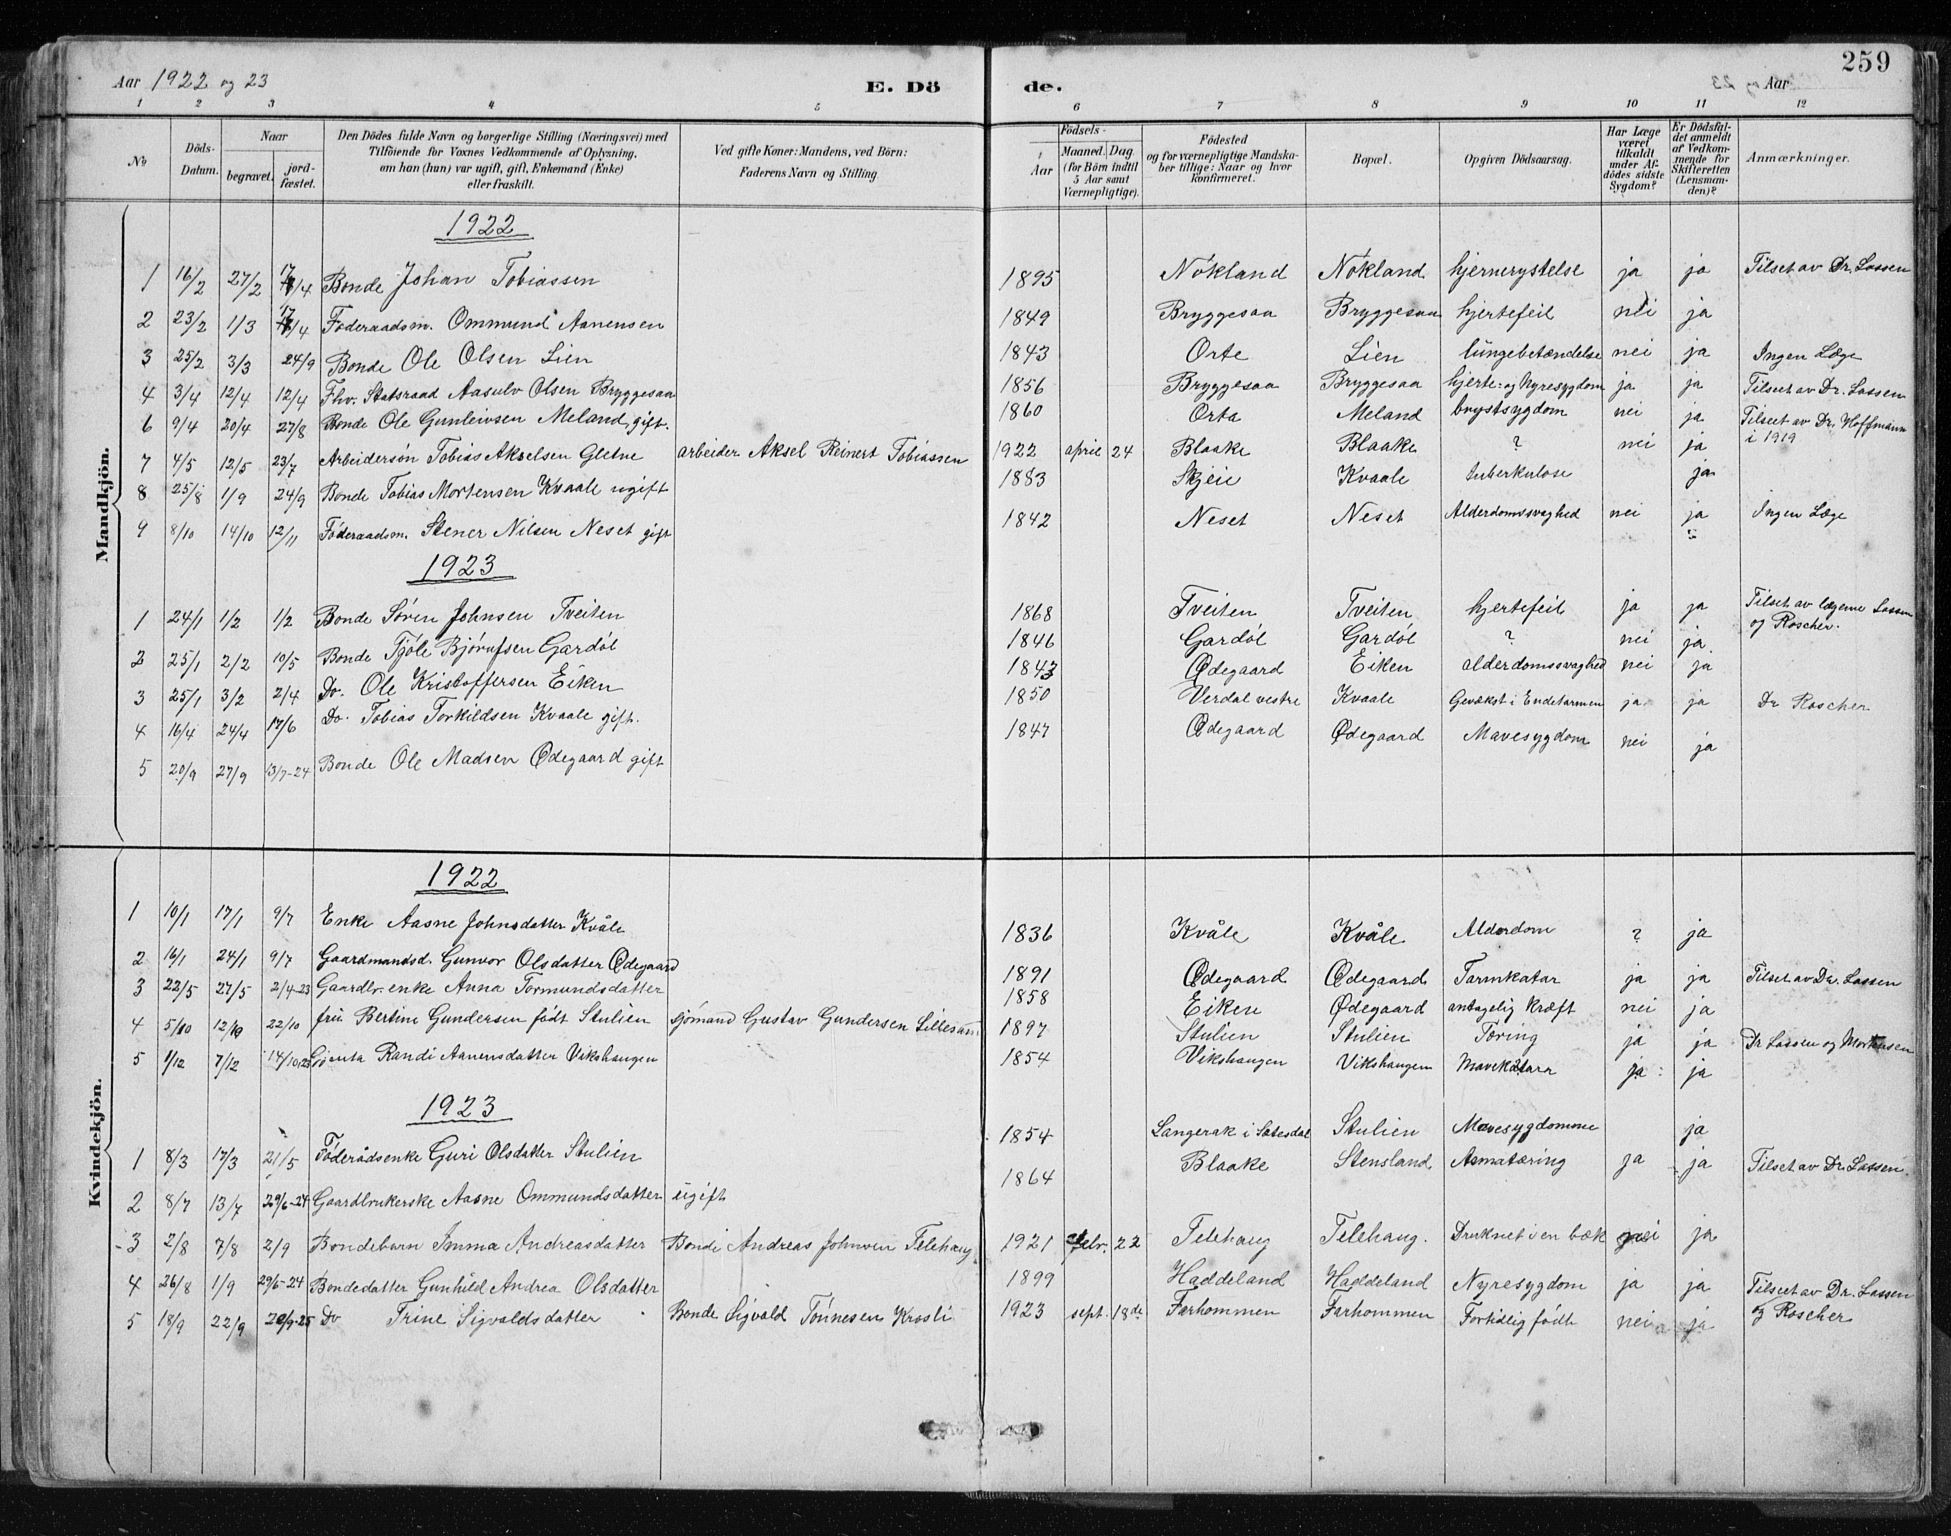 259
Aar 1922 og 23 E. Dö de. Aar
1 2 3 4 5 6 7 8 9 10 11 12
No Döds-Datum. Naar begravet. jord-fæstet. Den Dödes fulde Navn og borgerlige Stilling (Næringsvei) med Tilföiende for Voxnes Vedkommende af Oplysning, om han (hun) var ugift, gift, Enkemand (Enke) eller fraskilt. Ved gifte Koner: Mandens, ved Börn: Faderens Navn og Stilling Födsels- Aar Maaned. Dag (for Börn indtil 5 Aar samt Værnepligtige). Födested og for værnepligtige Mandska-ber tillige: Naar og hvor konfirmeret. Bopæl. Opgiven Dödsaarsag. Har Læge været tilkaldt under Af-dödes sidste Sygdom? Er Dödsfal-det anmeldt af Vedkom-mende for Skifteretten (Lensman-den)? Anmærkninger.
Mandkjön.
1922
1 16/2 27/2 17/4 Bonde Johan Tobiassen 1895 Nökland Nökland hjernerystelse ja ja Tilset av Dr. Lassen
2 23/2 1/3 17/4 Föderaadsm. Ommund Aanensen 1849 Bryggesaa Bryggesaa hjertefeil nei ja
3 25/2 3/3 24/9 Bonde Ole Olsen Lien 1843 Orte Lien lungebetændelse nei ja Ingen Læge
4 3/4 12/4 12/4 Fhv. Statsraad Aasulv Olsen Bryggesaa 1856 Bryggesaa Bryggesaa hjerte- og Nyresygdom ja ja Tilset av Dr. Lassen
6 9/4 20/4 27/8 Bonde Ole Gunleivsen Meland, gift. 1860 Orta Meland brystsygdom nei ja Tilset av Dr. Hoffmann i 1919
7 4/5 12/5 23/7 Arbeidersøn Tobias Akselsen Gletne arbeider Aksel Reinert Tobiassen 1922 april 24 Blaake Blaake ? nei ja
8 25/8 1/9 24/9 Bonde Tobias Mortensen Kvaale ugift 1883 Skjeie Kvaale tuberkulose ja
9 8/10 14/10 12/11 Föderaadsm. Stener Nilsen Neset gift 1842 Neset Neset Alderdomsvaghed nei ja Ingen Læge
1923
1 24/1 1/2 1/2 Bonde Søren Johnsen Tveiten 1868 Tveiten Tveiten hjertefeil ja ja Tilset av lægerne Lassen og Roscher.
2 25/1 2/2 10/5 Bonde Tjøle Bjørufsen Gardøl 1846 Gardøl Gardøl ? nei ja.
3 25/1 3/2 2/4 Do. Ole Kristoffersen Eiken 1843 Ødegaard Eiken alderdomssvaghed nei ja
4 16/4 24/4 17/6 Do. Tobias Torkildsen Kvaale gift. 1850 Verdal vestre Kvaale Gevækst i Endetarmen ja ja Dr Roscher
5 20/9 27/9 13/7-24 Bonde Ole Madsen Ødegaard gift 1847 Ødegaard Ødegaard Mavesygdom nei ja
Kvindekjön.
1922
1 10/1 17/1 9/7 Enke Aasne Johnsdatter Kvåle 1836 Kvåle Kvåle Alderdom ? ja
2 16/1 24/1 9/7 Gaardmandsd. Gunvor Olsdatter Ødegaard 1891 Ødegaard Ødegaard Tarmkatar ja ja Tilset av Dr. Lassen
3 22/5 27/5 2/4-23 Gaardbr.enke Anna Tormundsdatter 1858 Eiken Ødegaard antagelig Kræft nei ja
4 5/10 12/10 22/10 fru Bertine Gundersen födt Stulien sjömand Gustav Gundersen Lillesand 1897 Stulien Stulien Tæring ja ja Dr Lassen og Mortensen
5 1/12 7/12 14/10-23 Gjenta Randi Aanensdatter Vikshaugen 1854 Vikshaugen Vikshaugen Mavekatarr ja ja
1923
1 8/3 17/3 21/5 Föderådsenke Guri Olsdatter Stulien 1854 Langerak i Sætesdal Stulien Mavesygdomme ja
2 8/7 13/7 29/6-24 Gaardbrukerske Aasne Ommundsdatter ugift 1864 Blaake Stensland Asmatæring ja ja Tilset av Dr. Lassen.
3 2/8 7/8 2/9 Bondebarn Imma Andreasdatter Bonde Andreas Johnsen Telehaug 1921 febr. 22 Telehaug Telehaug. Druknet i en bæk nei ja
4 26/8 1/9 29/6-24 Bondedatter Gunhild Andrea Olsdatter 1899 Haddeland Haddeland Nyresygdom ja ja Tilset av Dr. Lassen og Roscher
5 18/9 22/9 20/9-25 Do Trine Sigvaldsdatter Bonde Sigvald Tönnesen Krosli 1923 sept. 18de Farhommen Farhommen Fortidlig födt nei ja